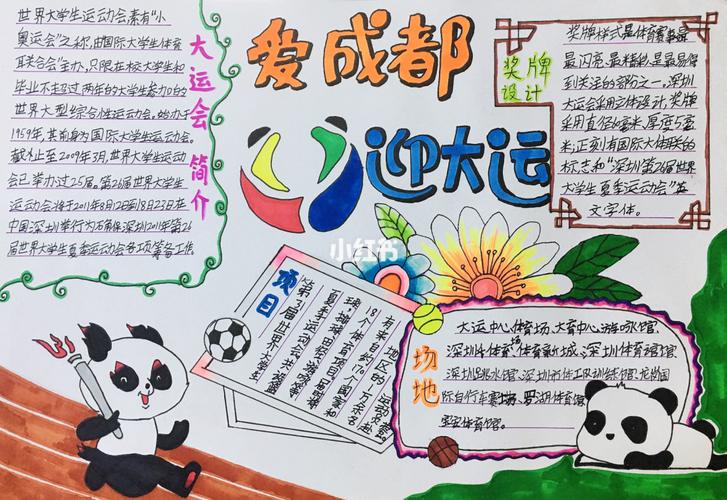 爱成都
迎大运
大运会简介
世界大学生运动会素有"小
奥运会"之称,由国际大学生体育
联合会"主办,只限在校大学生和
毕业不超过两年的大学生参加的
世界大型综合性运动会,始办于
1959年,其前身为国际大学生运动会.
截止至2009年3月,世界大学生运动
会已举办过25届。第26届世界大学生
运动会将于2011年8月12日至8月23日在
中国深圳举行为确保深圳2011年第26
届世界大学生夏季运动会各项筹备工作
奖牌
设计
奖牌样式是体育赛事最
最闪亮、最精彩、是最易得
到关注的部分之一,深圳
大运会采用立体设计,奖牌
采用直径6毫米,厚度5毫
米,正刻有国际大体联的
标志和"深圳第26届世界
大学生夏季运动会"英
文字体。
小红书
项目
第31届世界大学生
夏季运动会共有篮
18个体育项目170个国家和
有来自地区的 运动员
场地
大运中心体育场、大育中心、游泳馆、
深圳 体育新城、深圳体育馆
深圳跳水馆、深圳市体工队训练馆、龙岗国
际自行车赛场、罗湖体育馆
宝安体育馆。